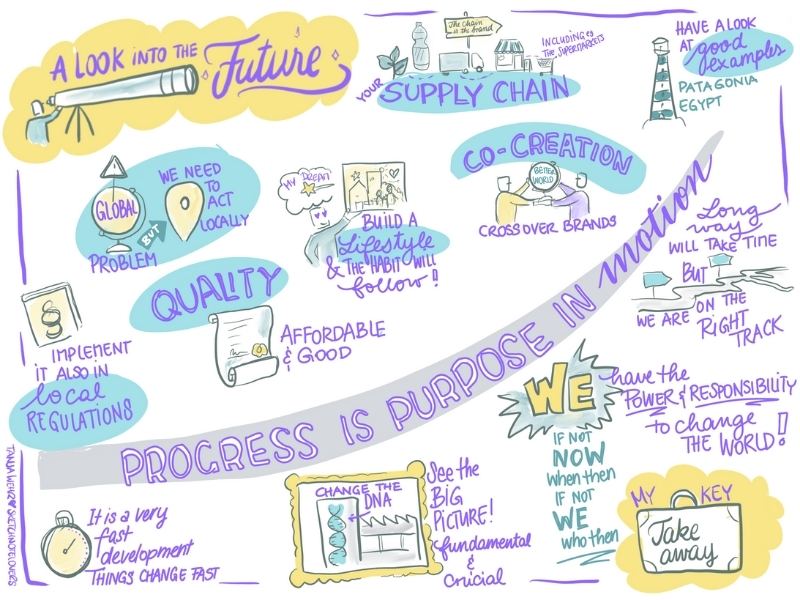 A LOOK INTO THE
Future
YOUR
SUPPLY CHAIN
The Chain
is the brand
INCLUDING
THE SUPERMARKETS
HAVE A LOOK
AT good
examples
PATAGONIA
EGYPT
GLOBAL
PROBLEM
BUT
WE NEED
TO
ACT
LOCALLY
MY DREAM
BUILD A
Lifestyle
& THE HABIT WILL
follow!
CO-CREATION
BETTER
WORLD
CROSSOVER BRANDS
Long
way
WILL TAKE TIME
BUT
WE ARE ON THE
RIGHT
TRACK
QUALITY
AFFORDABLE
& GOOD
§
IMPLEMENT
IT ALSO IN
local
REGULATIONS
PROGRESS IS PURPOSE IN motion
WE
have the
POWER & RESPONSIBILITY
to change
THE WORLD!
IF NOT
NOW
when then
IF NOT
WE
who then
It is a very
fast
development
THINGS CHANGE FAST
CHANGE THE
DNA
See the
BIG
PICTURE!
fundamental
&
crucial
MY KEY
Take
away